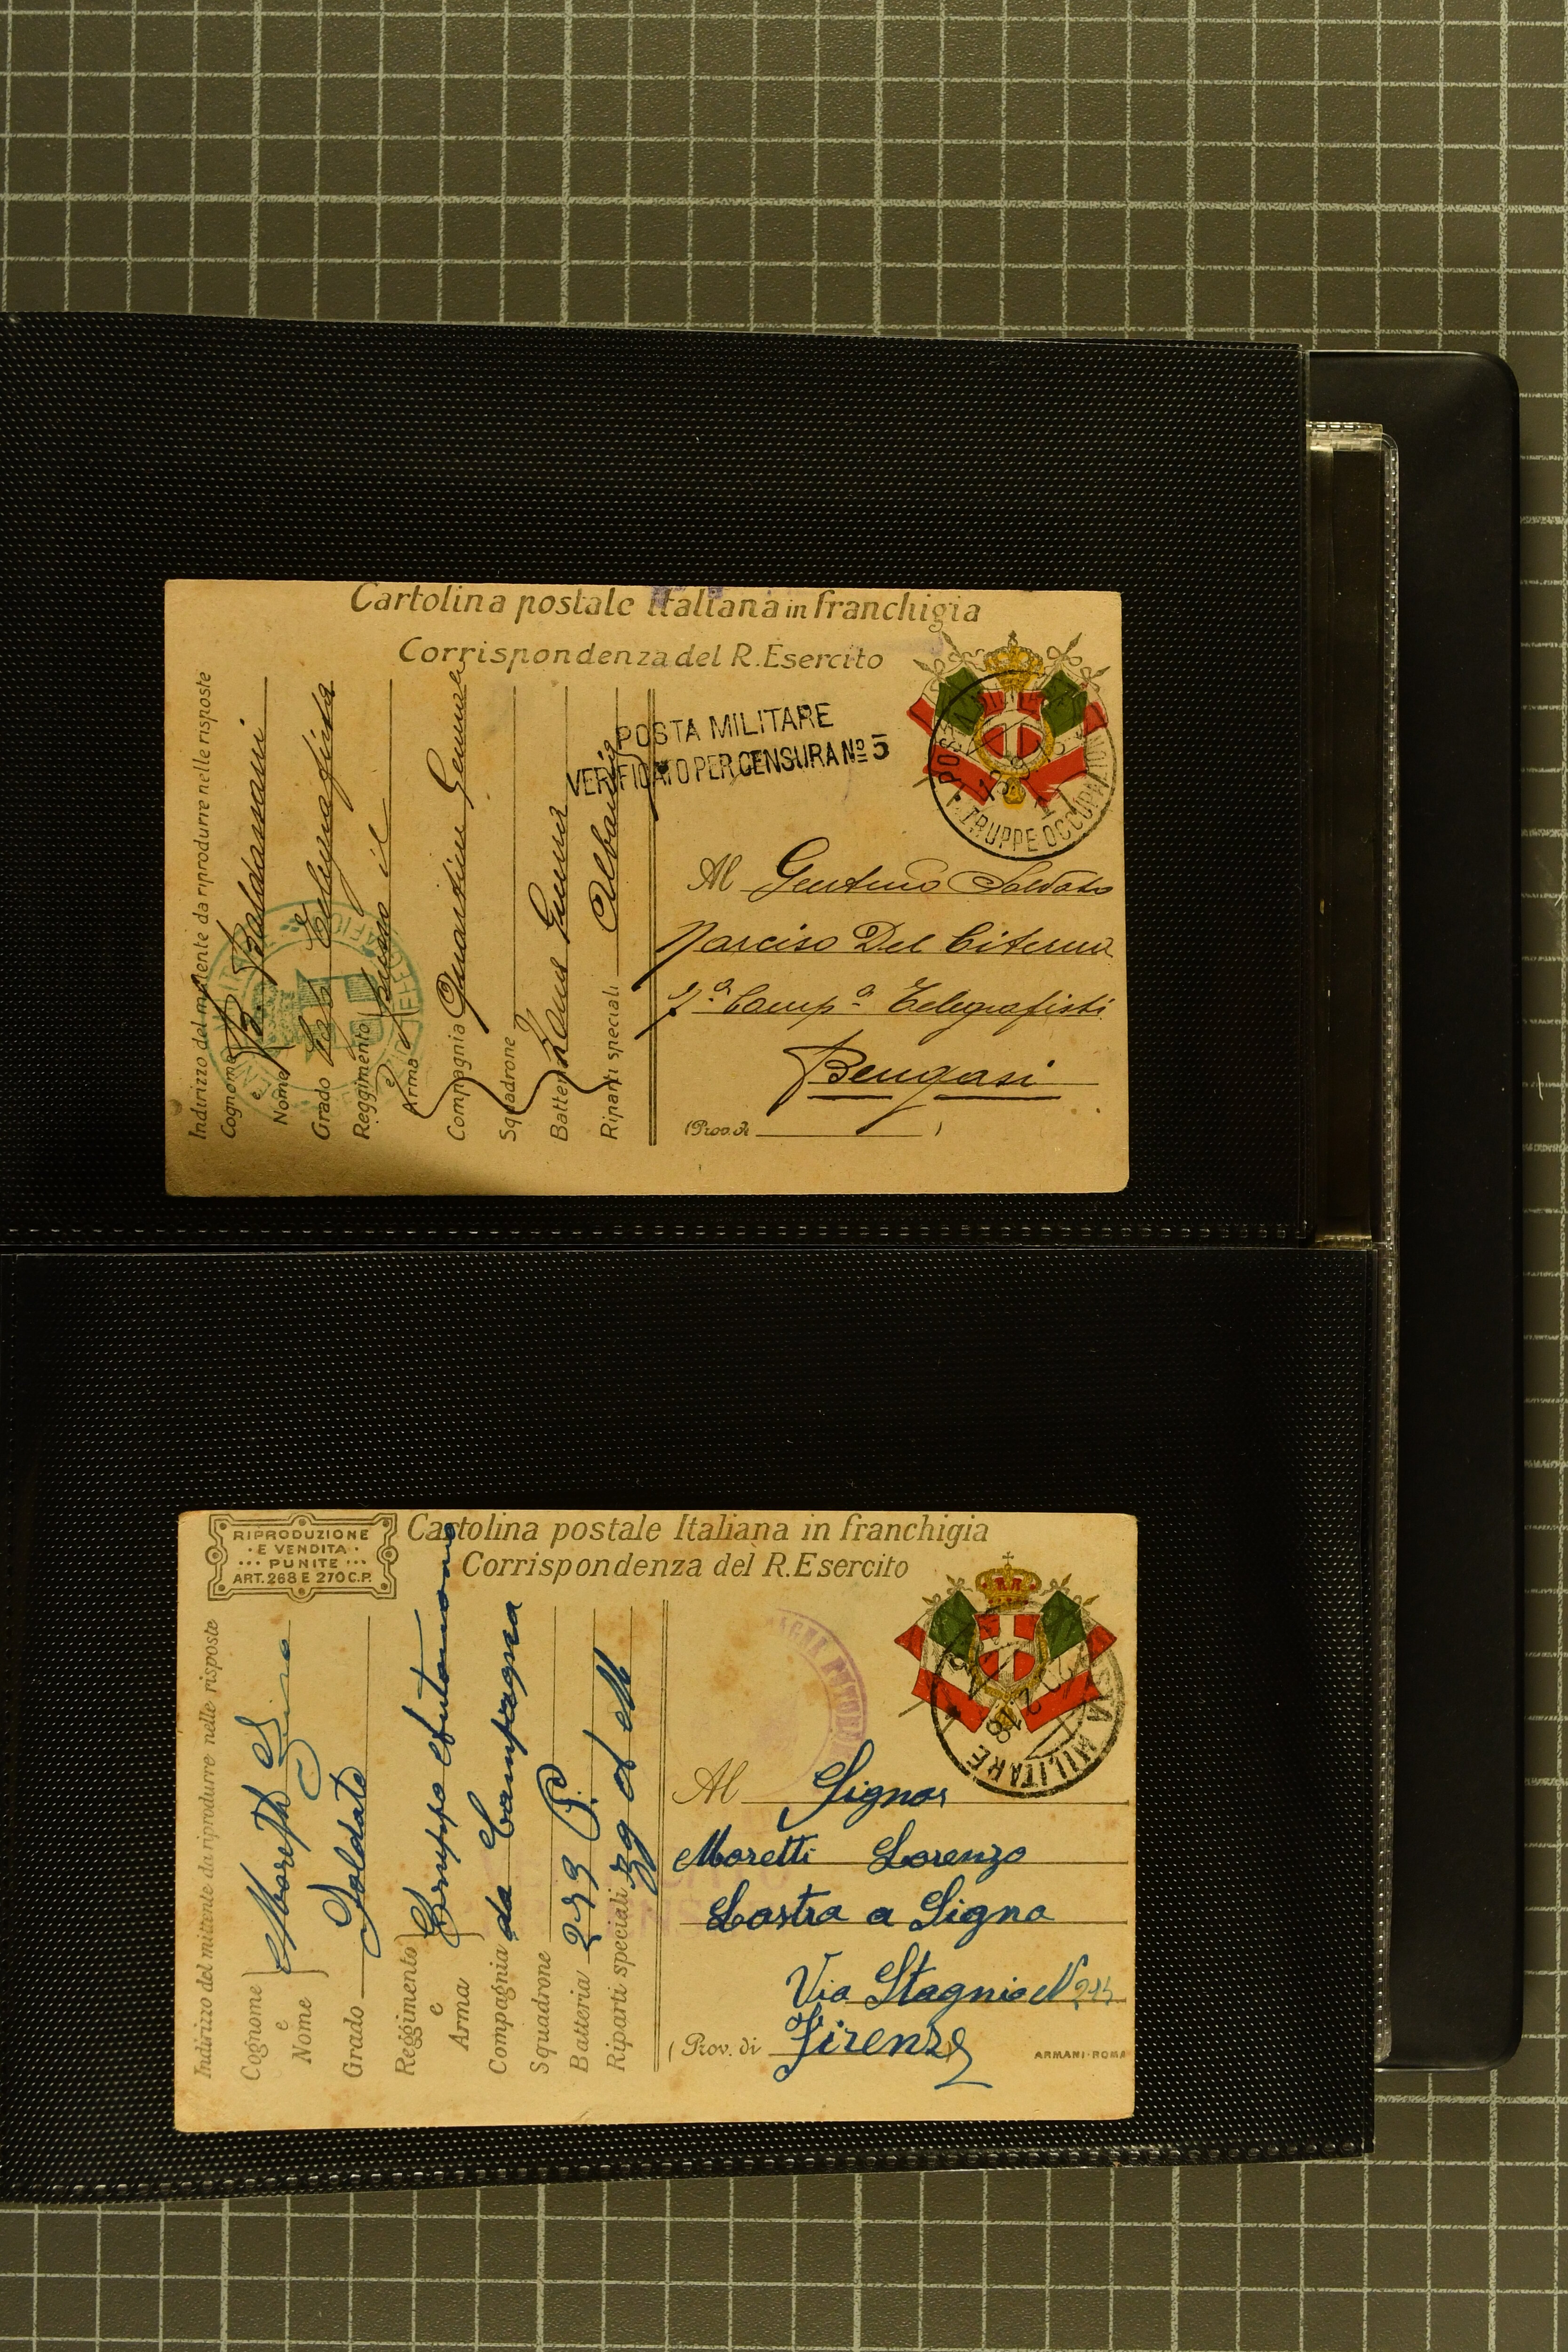 Cartolina postale Italiana in franchigia
Corrispondenza del R. Esercito
Indirizzo del mittente da riprodurre nelle risposte
Cognome e Nome
Grado Telegrafista
Reggimento e Arma
Compagnia Quartier Generale
Squadrone
Batteria
Riparti speciali Albania
POSTA MILITARE
VERIFICATO PER CENSURA Nº 5
POSTA MILITARE
TRUPPE OCCUPAZION
Al Soldato
Narciso Del Citerna
Comp.ª Telegrafisti
Bengasi
(Prov. di )
RIPRODUZIONE
E VENDITA
PUNITE
ART. 268 E 270 C.P.
Cartolina postale Italiana in franchigia
Corrispondenza del R. Esercito
Indirizzo del mittente da riprodurre nelle risposte
Cognome e Nome Moretti Gino
Grado Soldato
Reggimento e Arma Gruppo Autonomo
Compagnia da Campagna
Squadrone
Batteria
Riparti speciali
POSTA MILITARE
Al Signor
Moretti Lorenzo
Lastra a Signa
Via Stagnio N
(Prov. di Firenze
ARMANI-ROMA